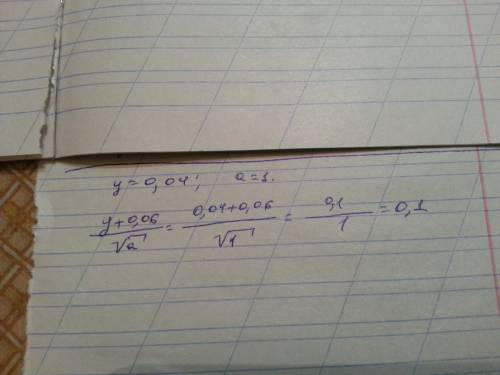 y = 0,04; a = 1.
(y+0,06)/√a = (0,04+0,06)/√1 = 0,1/1 = 0,1